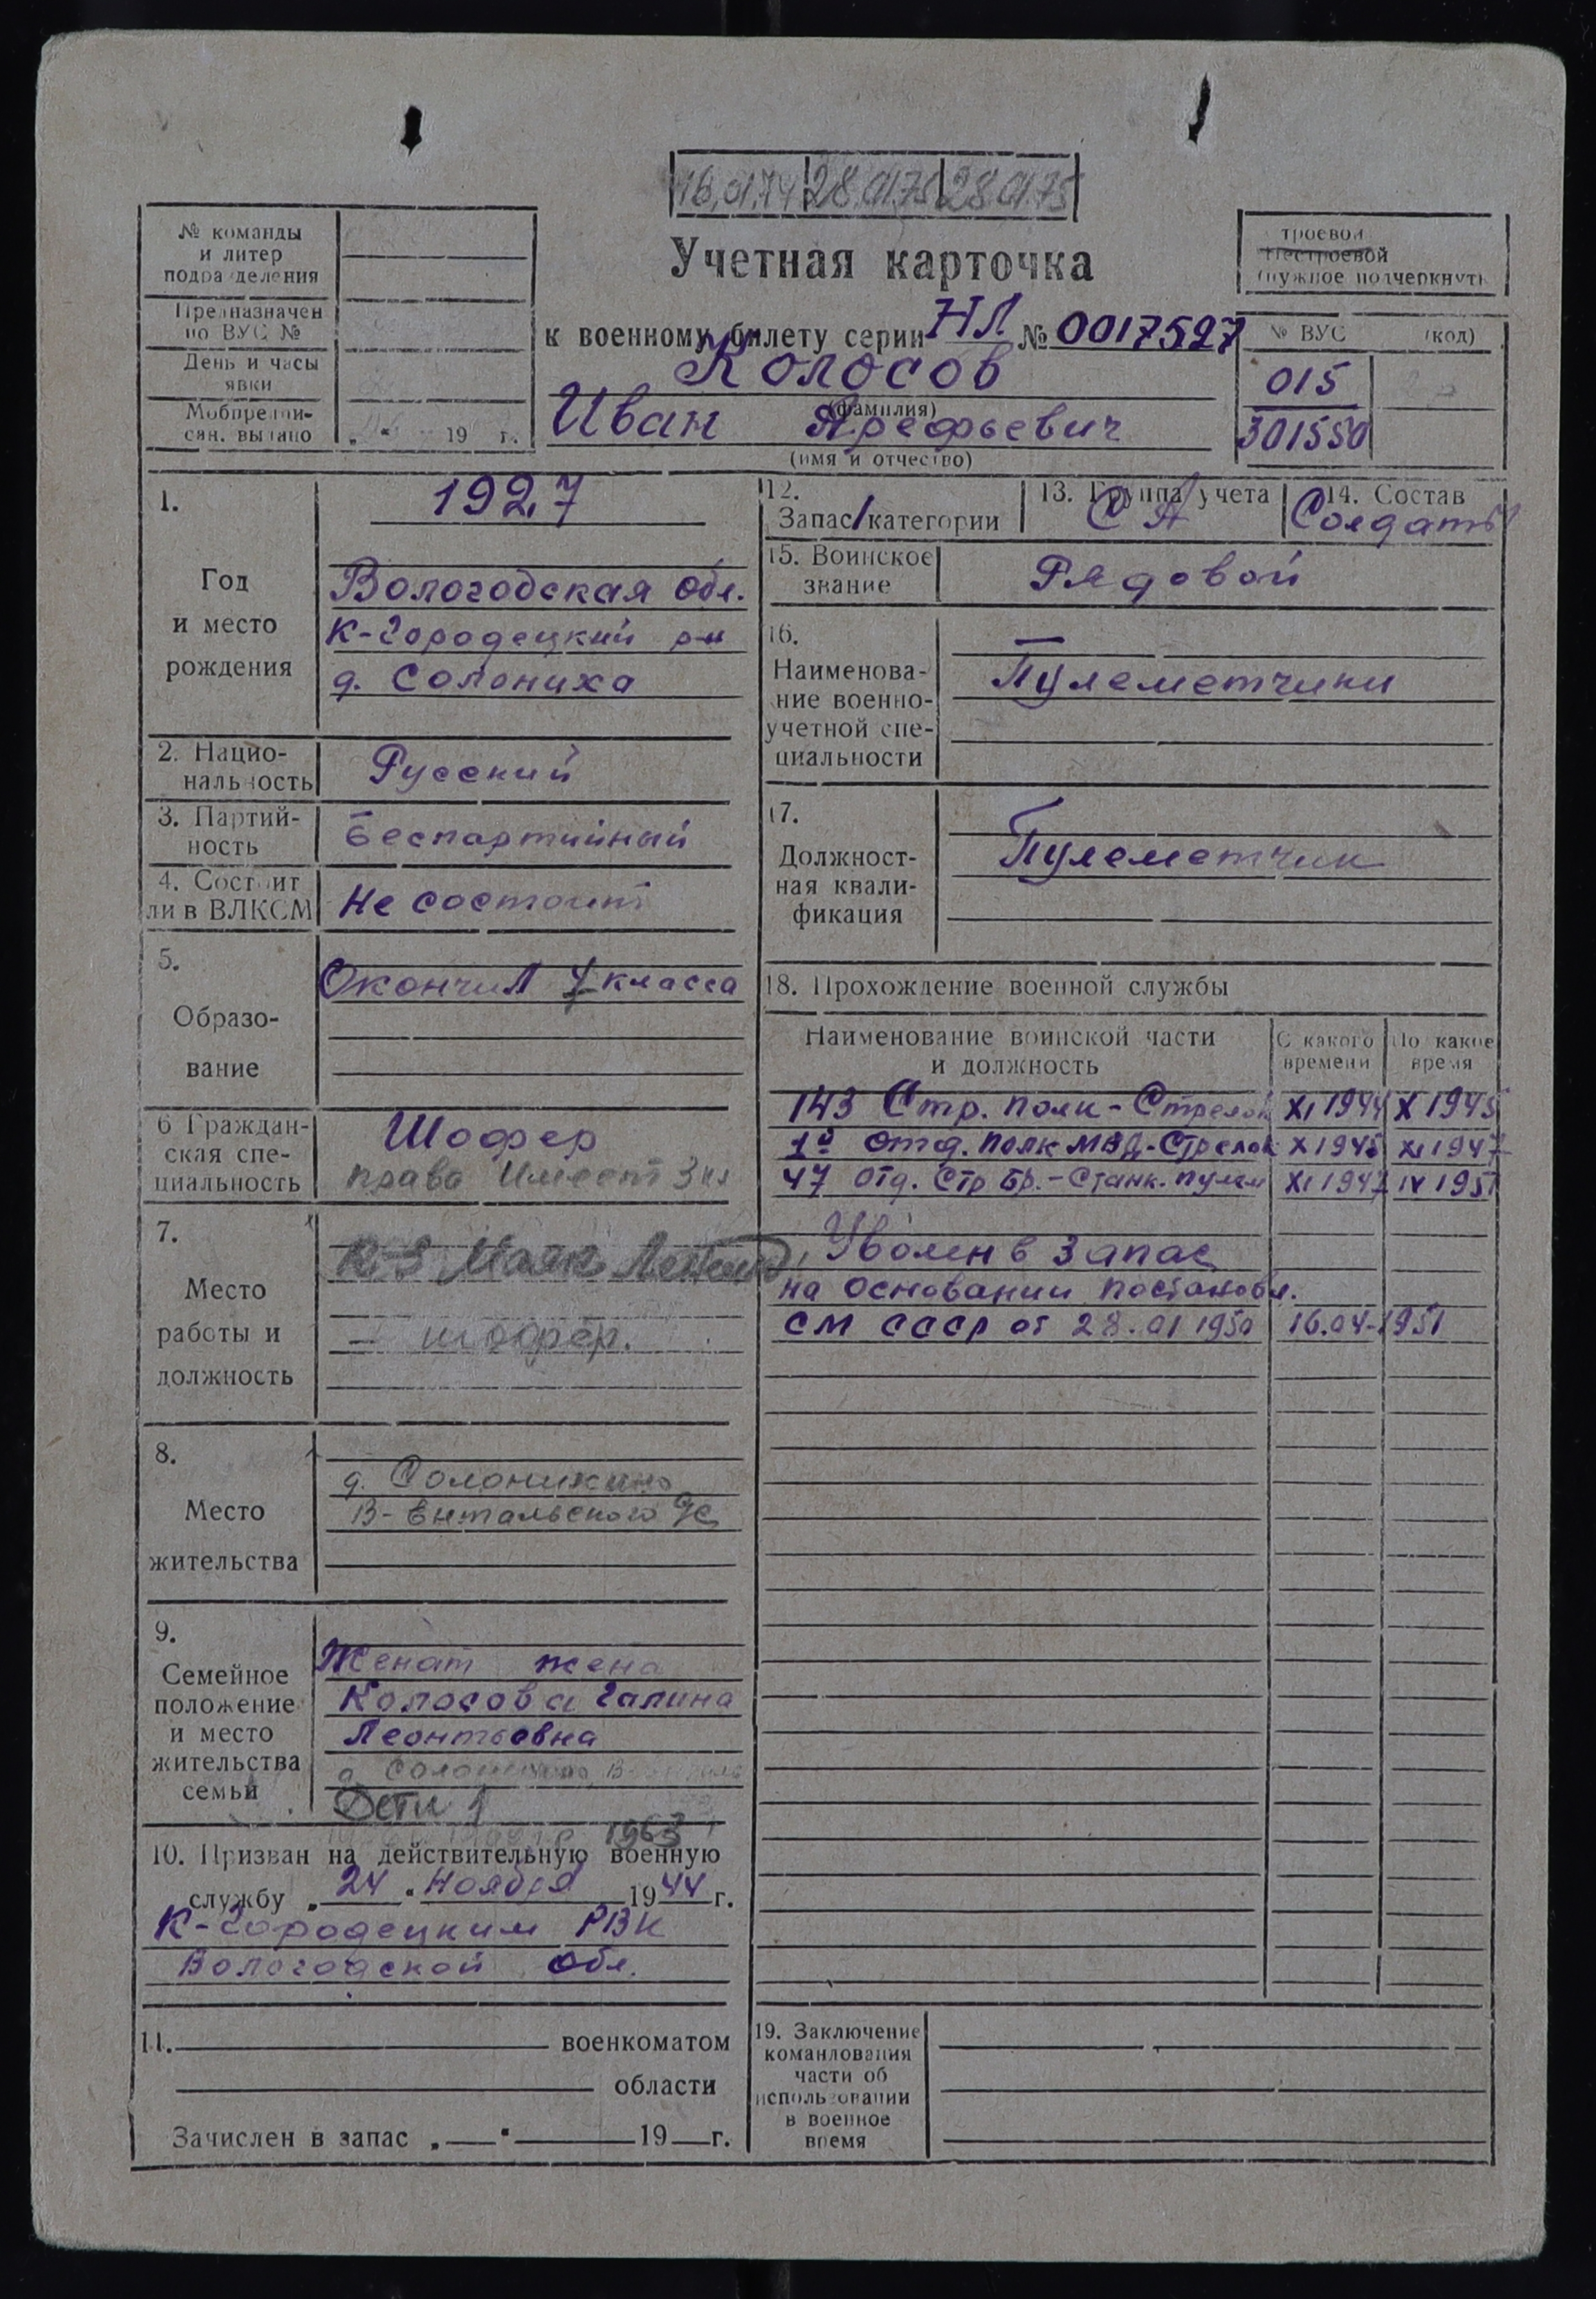 16.01.74 28.01.75 28.01.75
№ команды
и литер
подразделения
Предназначен
по ВУС №
День и часы
явки
Мобпредпи-
сан. выдано
„ “ 19 г.
Учетная карточка
к военному билету серии НЛ № 0017527
Колосов
(фамилия)
Иван Арефьевич
(имя и отчество)
троевой
Нестроевой
(нужное подчеркнуть
№ ВУС (код)
015
301550
1.
Год
и место
рождения
1927
Вологодская обл.
К-Городецкий р-н
д. Солониха
2. Нацио-
нальность
Русский
3. Партий-
ность
Беспартийный
4. Состоит
ли в ВЛКСМ
Не состоит
5.
Образо-
вание
Окончил 4 класса
6 Граждан-
ская спе-
циальность
Шофер
права имеет 3 кл
7.
Место
работы и
должность
К-З Маяк
– шофер.
8.
Место
жительства
д. Солоникино
В-Ентальского с/с
9.
Семейное
положение
и место
жительства
семьи
Женат жена
Колосова Галина
Леонтьевна
д.
Дети 1
1963
10. Призван на действительную военную
службу „ 24 “ Ноября 1944 г.
К-Городецким РВК
Вологодской обл.
11. военкоматом
области
Зачислен в запас „ “ 19 г.
12.
Запас/категории
13. Группа учета
СА
14. Состав
Солдаты
15. Воинское
звание
Рядовой
16.
Наименова-
ние военно-
учетной спе-
циальности
Пулеметчики
17.
Должност-
ная квали-
фикация
Пулеметчик
18. Прохождение военной службы
Наименование воинской части
и должность
С какого
времени
По какое
время
143 Стр. полк - Стрелок XI 1944 X 1945
1й отд. полк МВД - Стрелок X 1945 XI 1947
47 отд. Стр бр. - Станк. пулем XI 1947 IV 1951
Уволен в запас
на основании постановл.
СМ СССР от 28.01 1950 16.04-1951
19. Заключение
командования
части об
использовании
в военное
время